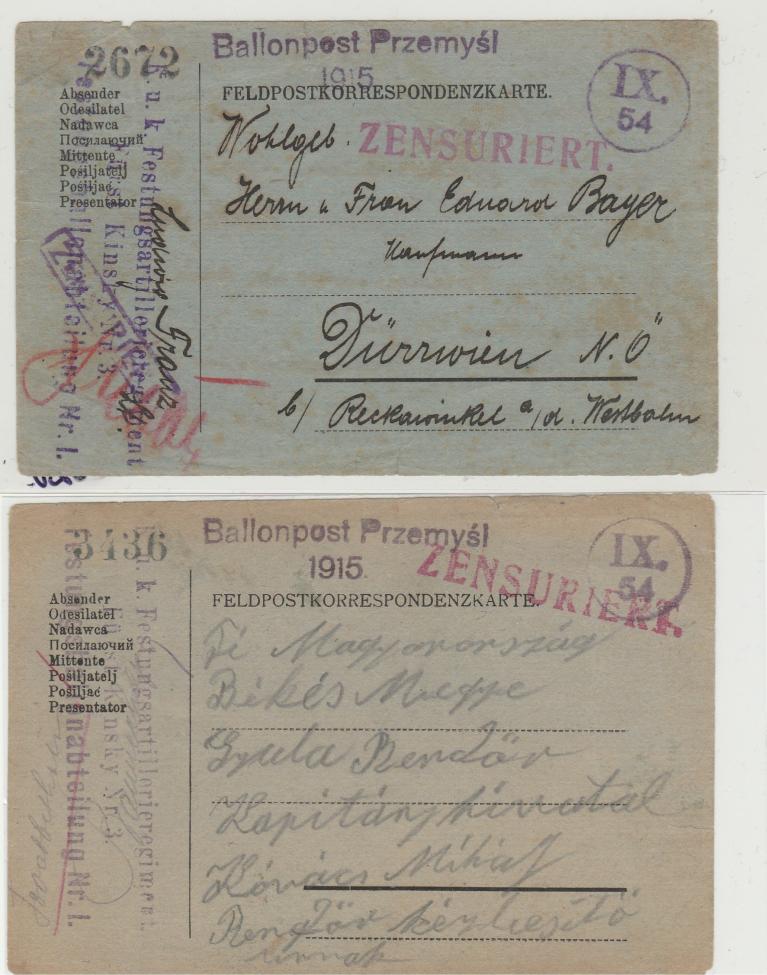 2672
Ballonpost Przemyśl
1915
IX.
54
FELDPOSTKORRESPONDENZKARTE.
ZENSURIERT.
Absender
Odesilatel
Nadawca
Посилаючий
Mittente
Pošiljatelj
Pošiljač
Presentator
k. u. k Festungsartillerieregiment
Fürst Kinsky Nr. 3.
Festungsballonabteilung Nr. I.
Franz
Wohlgeb.
Herrn u Frau Eduard Bayer
Kaufmann
Dürrwien N. Ö
b/ Reckawinkel a/d. Westbahn
3436
Ballonpost Przemyśl
1915
IX.
54
ZENSURIERT.
FELDPOSTKORRESPONDENZKARTE.
Absender
Odesilatel
Nadawca
Посилаючий
Mittente
Pošiljatelj
Pošiljač
Presentator
k. u. k. Festungsartillerieregiment
Fürst Kinsky Nr. 3.
Festungsballonabteilung Nr. I.
Magyarország
Békés Megye
Gyula Rendőr
Kapitány hivatal
Kovács Mihály
Rendőr kézbesítő
urnak